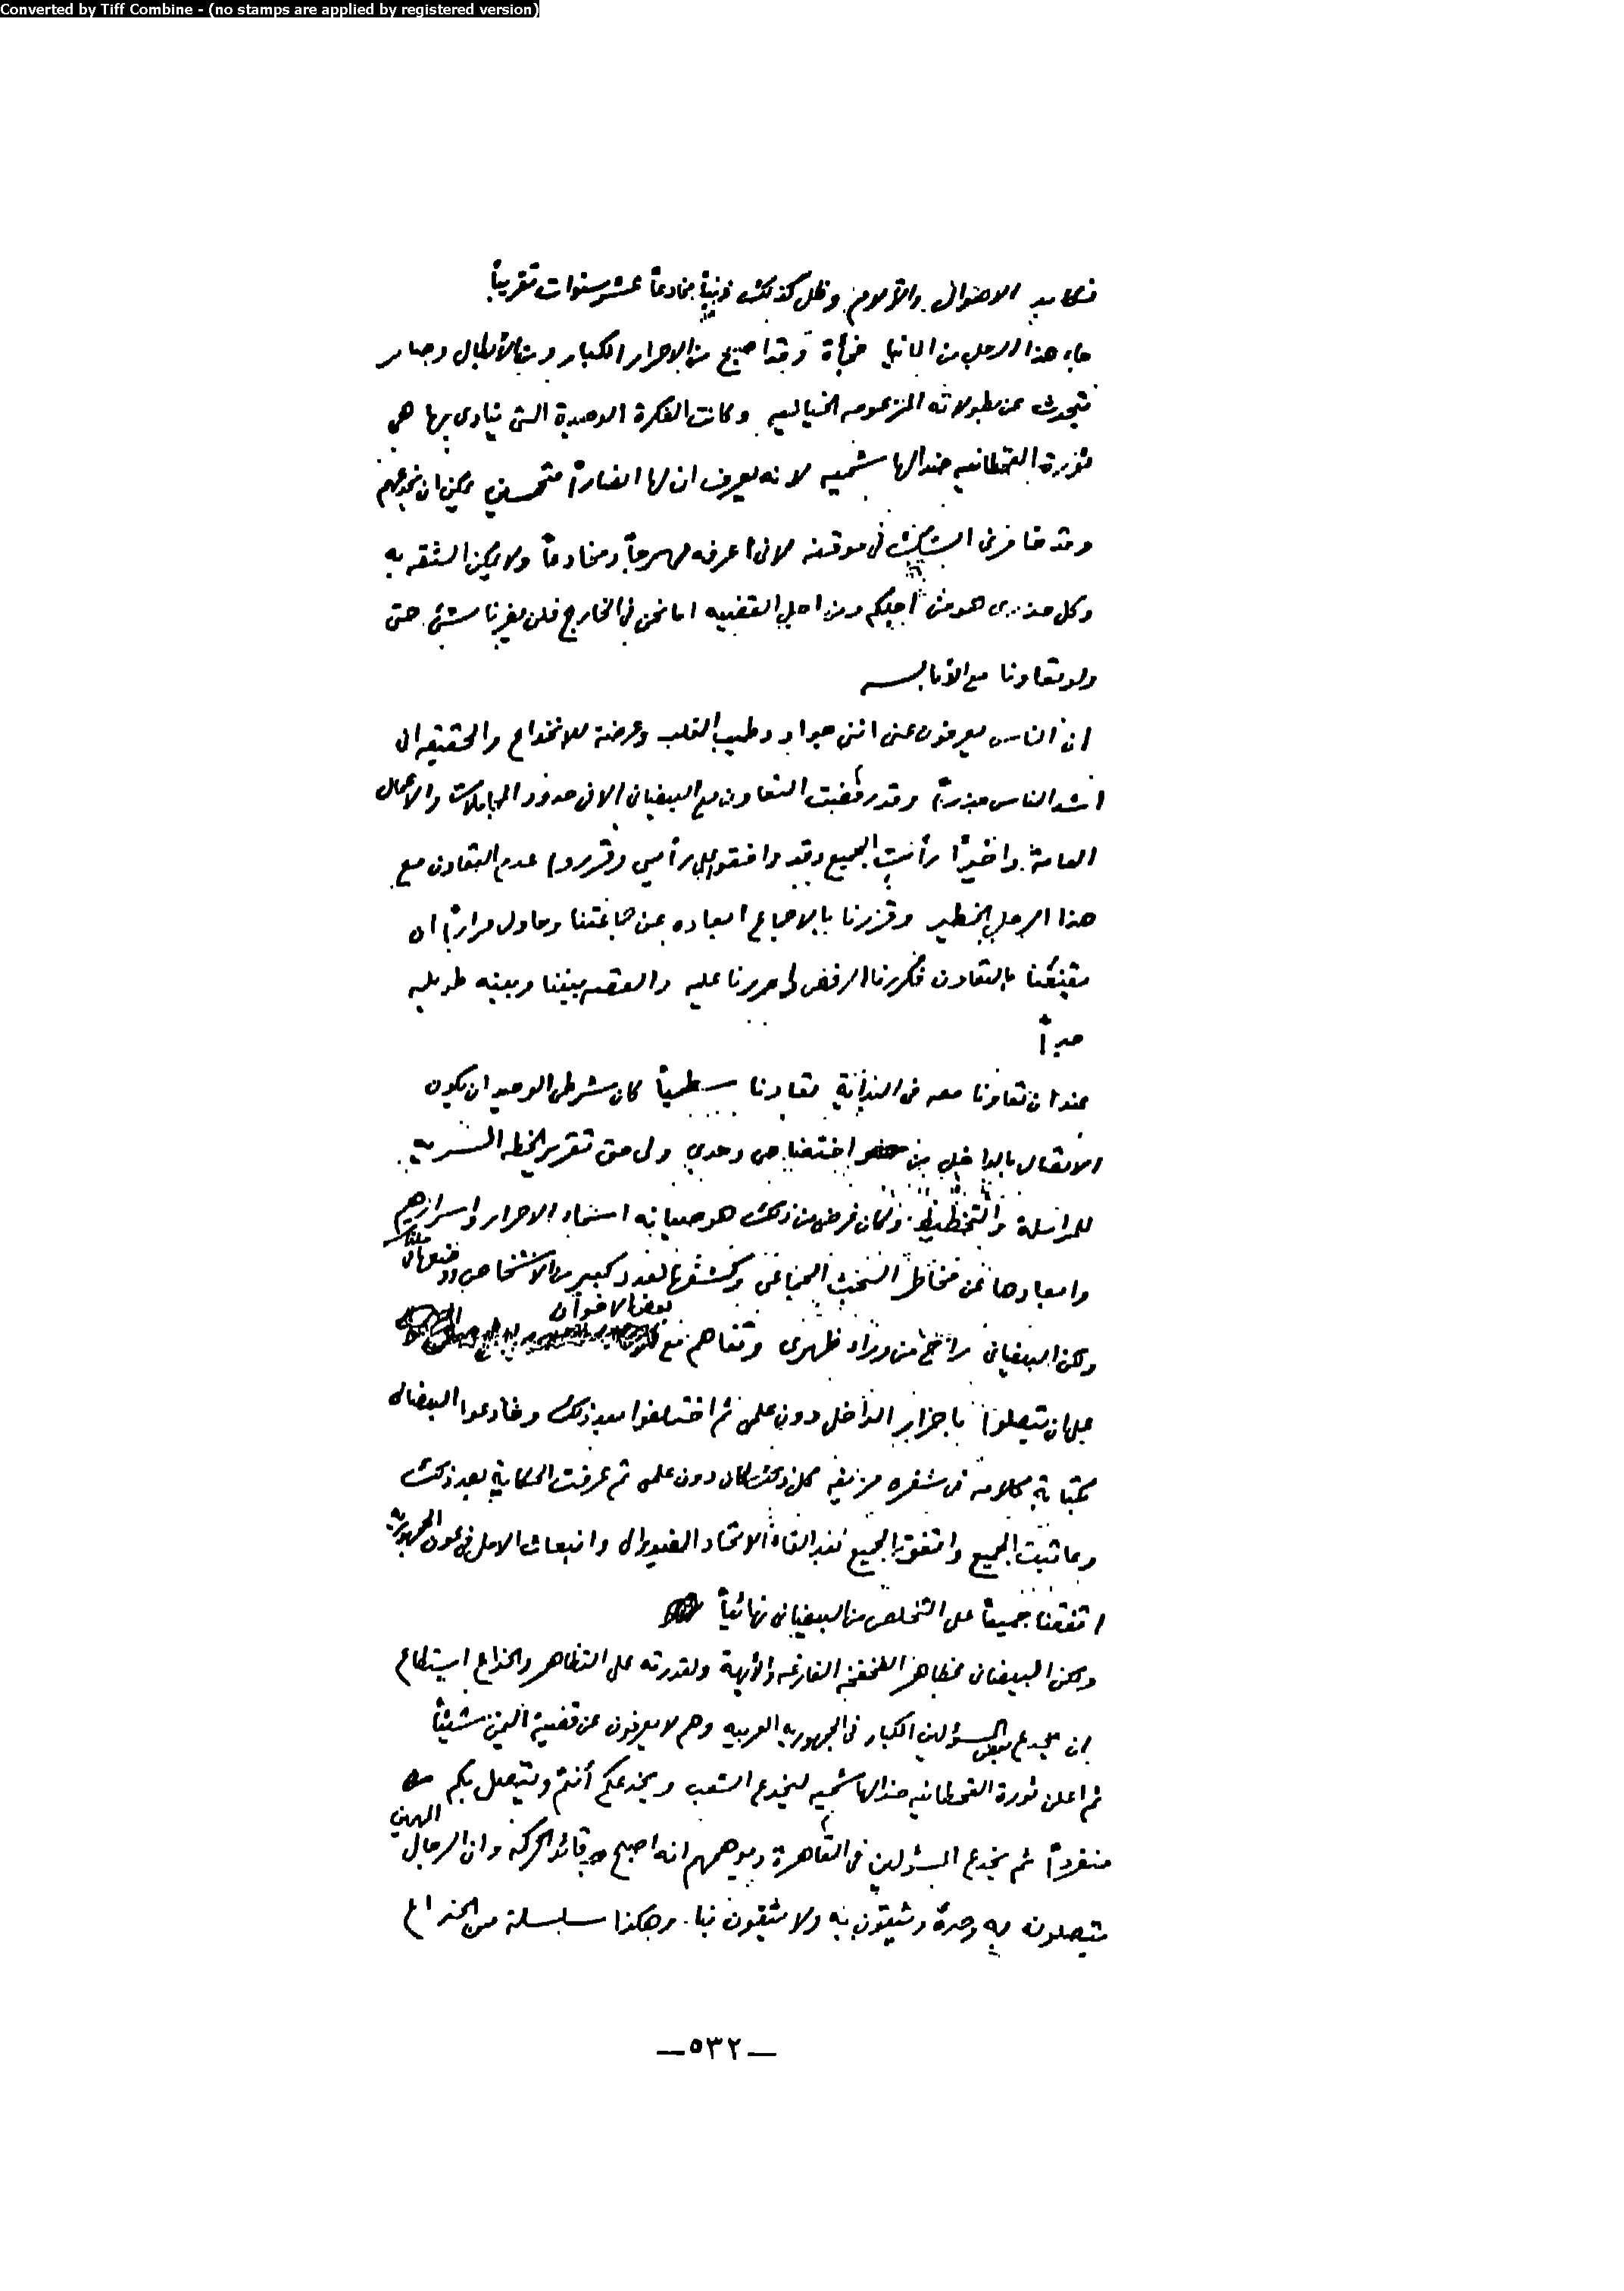 Converted by Tiff Combine - (no stamps are applied by registered version)
نكابد الاهوال والآلام وظل كذلك ذنباً مخادعاً عشر سنوات تقريباً
جاء هذا الرجل من المانيا فجأة وقد اصبح من الاحرار الكبار ومن الأبطال وصار
يتحدث عن بطولاته المزعومه الخياليه وكانت الفكرة الوحيدة التى ينادى بها هى
ثورة القحطانيه ضد الهاشميه لانه يعرف ان لها انصاراً متحمسين يمكن ان يخدعهم
وقد خامرنى الشك فى موقفه لانى اعرفه مهرجاً ومخادعاً ولا يمكن الثقه به
وكل حذرى هو من اجلكم ومن اجل القضيه اما نحن فى الخارج فلن يضرنا شئ حتى
ولو تعاونا مع الأبالسه
ان الناس يعرفون عنى اننى جواد وطيب القلب وعرضة للانخداع والحقيقه انى
اشد الناس حذراً وقد رفضت التعاون مع البيضانى الا فى حدود المجاملات والأعمال
العامة واخيراً رأيت الجميع وقد وافقوا على رأيى وقرروا عدم التعاون مع
هذا الرجل الخطير وقررنا بالاجماع ابعاده عن جماعتنا وحاول مراراً ان
يقنعنا بالتعاون فكررنا الرفض واصررنا عليه والقصه بيننا وبينه طويله
جداً
عندما تعاونا معه فى البداية تعاونا سطحياً كان شرطى الوحيد ان يكون
الاتصال بالداخل من اختصاصى وحدى ولى حق تقرير الخطه السريه
للمراسلة والتخطيط وكان غرضى من ذلك هو صيانه اسماء الاحرار واسرارهم
وابعادها عن مخاطر البحث الجماعى وكشفها لعدد كبير من الاشخاص
ولكن البيضانى راح من وراء ظهرى وتفاهم مع بعض الاخوان
على ان يتصلوا باحرار الداخل دون علمى ثم اختلفوا بعد ذلك وخادعوا البيضانى
بكتابة كلامه فى شفره مزيفه كل ذلك كان دون علمى ثم عرفت الحكاية بعد ذلك
وعاتبت الجميع واتفق الجميع بعد الغاء الاتحاد الفيدرالى وانبعاث الامل فى عون الجمهورية
اتفقنا جميعاً على التخلص من البيضانى نهائياً
ولكن البيضانى بمظاهر الفخفخه الفارغه والأبهة ولقدرته على التظاهر والخداع استطاع
ان يخدع بعض المسؤلين الكبار فى الجمهوريه العربيه وهم لا يعرفون عن قضية اليمن شيئاً
ثم اعلن ثورة القحطانيه ضد الهاشميه ليخدع الشعب ويخدعكم أنتم ويتصل بكم
منفرداً ثم يخدع المسؤلين فى القاهرة ويوهمهم انه اصبح قائد الحركه وان الرجال
يتصلون به وحده ويثقون به ولا يثقون بنا. وهكذا سلسلة من الخداع
—٥٣٢—